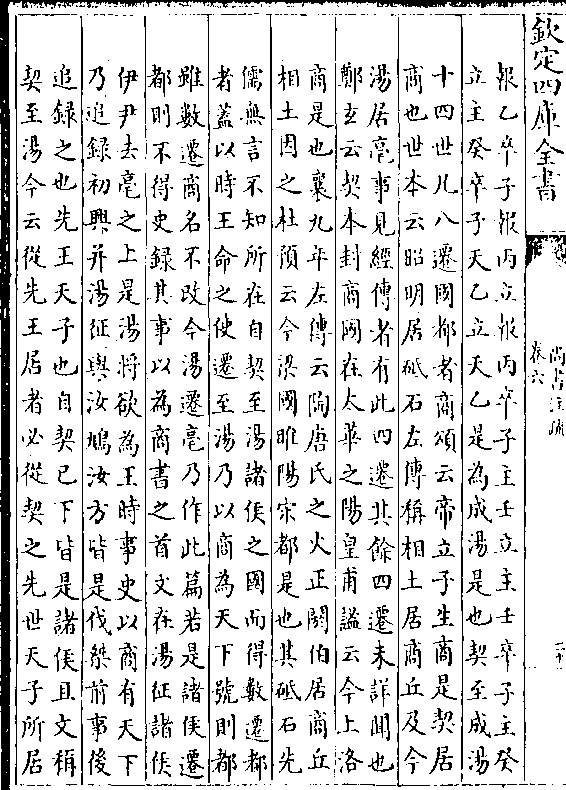 欽定四庫全書
尚書注疏
卷六
報乙卒子報丙立報丙卒子主壬立主壬卒子主癸
立主癸卒子天乙立天乙是為成湯是也契至成湯
十四世凡八遷國都者商頌云帝立子生商是契居
商也世本云昭明居砥石左傳稱相土居商丘及今
湯居亳事見經傳者有此四遷其餘四遷未詳聞也
鄭玄云契本封商國在太華之陽皇甫謐云今上洛
商是也襄九年左傳云陶唐氏之火正閼伯居商丘
相土因之杜預云今梁國睢陽宋都是也其砥石先
儒無言不知所在自契至湯諸侯之國而得數遷都
者蓋以時王命之使遷至湯乃以商為天下號則都
雖數遷商名不改今湯遷亳乃作此篇若是諸侯遷
都則不得史錄其事以為商書之首文在湯征諸侯
伊尹去亳之上是湯將欲為王時事史以商有天下
乃追錄初興并湯征與汝鳩汝方皆是伐桀前事後
追錄之也先王天子也自契已下皆是諸侯且文稱
契至湯今云從先王居者必從契之先世天子所居